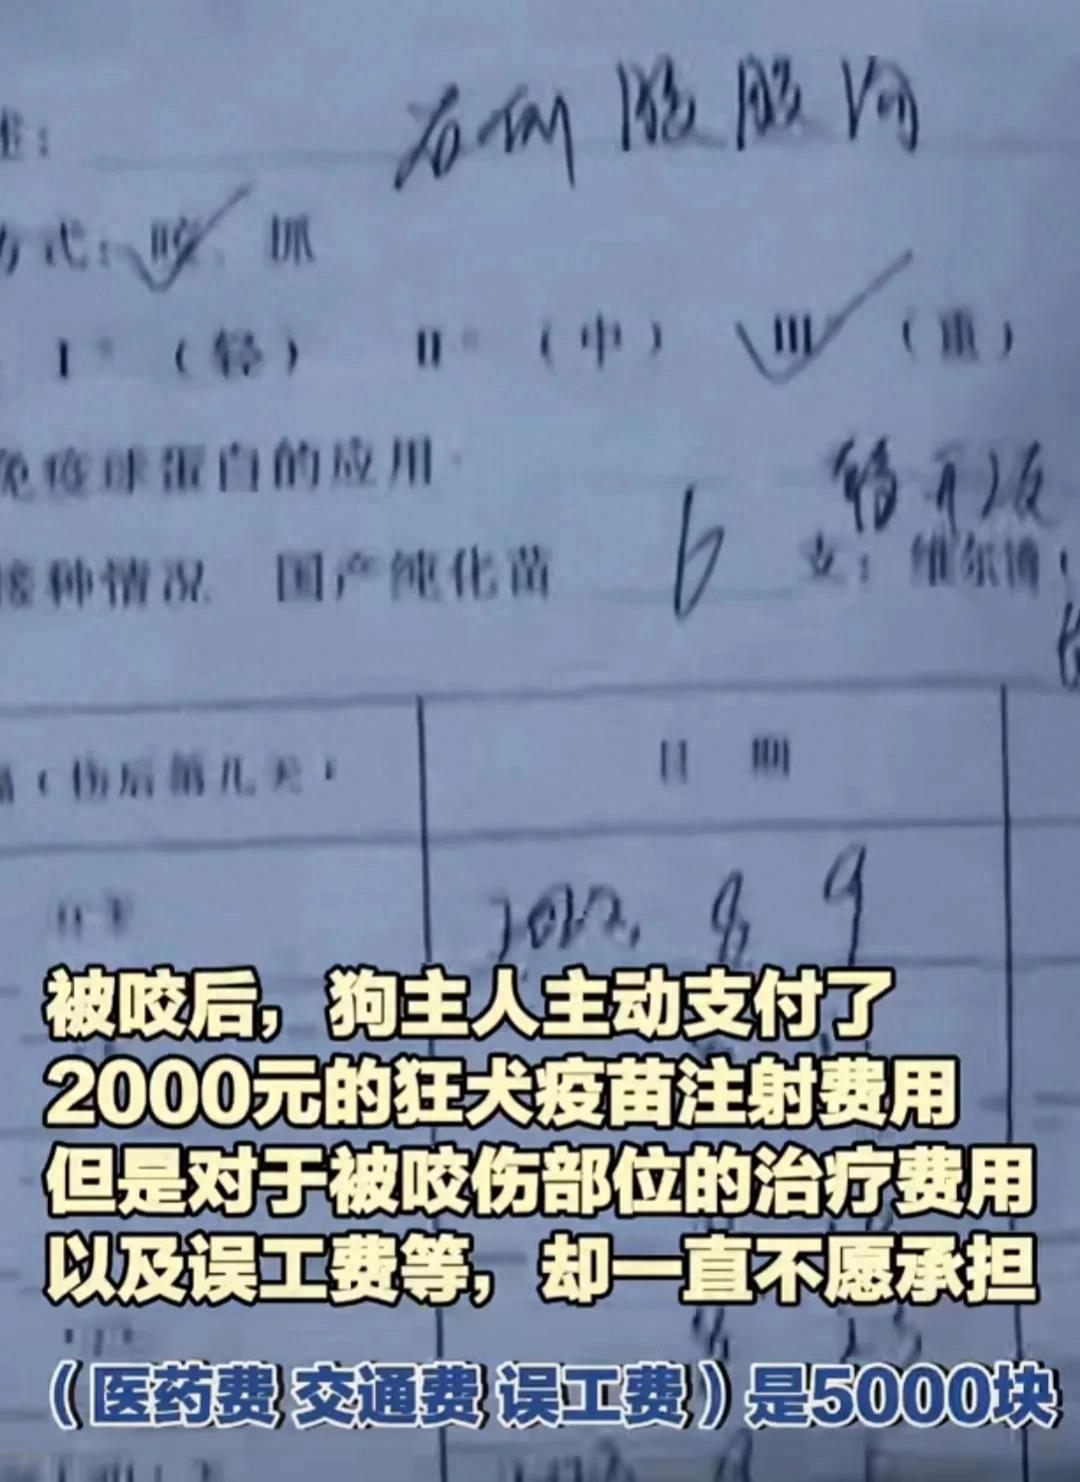 右侧腹股沟
方式：咬、抓
I°（轻） II°（中） III°（重）
免疫球蛋白的应用
接种情况 国产纯化苗 6 支；维尔博；
（伤后第几天） 日 期
2022. 8. 9
被咬后，狗主人主动支付了
2000元的狂犬疫苗注射费用
但是对于被咬伤部位的治疗费用
以及误工费等，却一直不愿承担
（医药费 交通费 误工费）是5000块